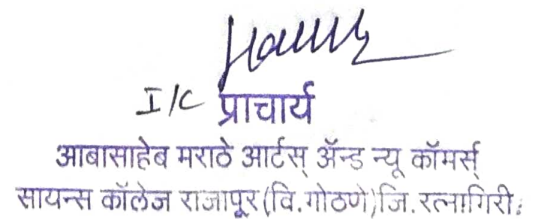 I/C प्राचार्य
आबासाहेब मराठे आर्टस् ॲन्ड न्यू कॉमर्स्
सायन्स कॉलेज राजापूर (वि.गोठणे) जि. रत्नागिरी.